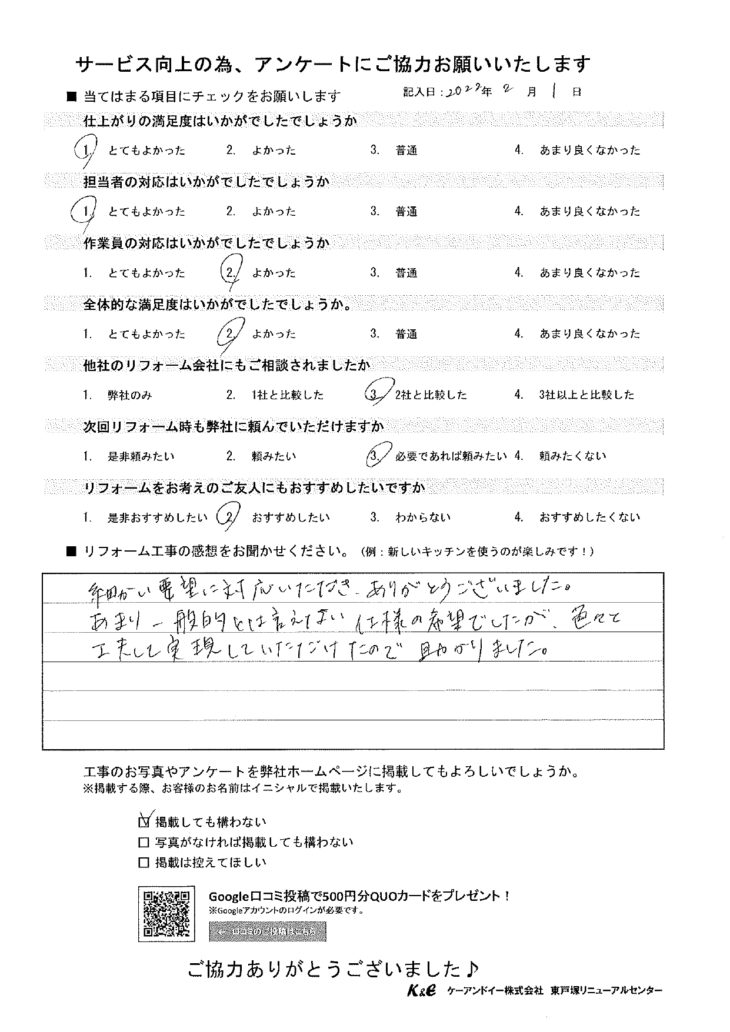 サービス向上の為、アンケートにご協力お願いいたします
■ 当てはまる項目にチェックをお願いします 記入日:2023年 2 月 1 日
仕上がりの満足度はいかがでしたでしょうか
1. とてもよかった 2. よかった 3. 普通 4. あまり良くなかった
担当者の対応はいかがでしたでしょうか
1. とてもよかった 2. よかった 3. 普通 4. あまり良くなかった
作業員の対応はいかがでしたでしょうか
1. とてもよかった 2. よかった 3. 普通 4. あまり良くなかった
全体的な満足度はいかがでしたでしょうか。
1. とてもよかった 2. よかった 3. 普通 4. あまり良くなかった
他社のリフォーム会社にもご相談されましたか
1. 弊社のみ 2. 1社と比較した 3. 2社と比較した 4. 3社以上と比較した
次回リフォーム時も弊社に頼んでいただけますか
1. 是非頼みたい 2. 頼みたい 3. 必要であれば頼みたい 4. 頼みたくない
リフォームをお考えのご友人にもおすすめしたいですか
1. 是非おすすめしたい 2. おすすめしたい 3. わからない 4. おすすめしたくない
■ リフォーム工事の感想をお聞かせください。(例:新しいキッチンを使うのが楽しみです!)
細かい要望に対応いただき、ありがとうございました。
あまり一般的とは言えない仕様の希望でしたが、色々と
工夫して実現していただけたので助かりました。
工事のお写真やアンケートを弊社ホームページに掲載してもよろしいでしょうか。
※掲載する際、お客様のお名前はイニシャルで掲載いたします。
☑ 掲載しても構わない
□ 写真がなければ掲載しても構わない
□ 掲載は控えてほしい
Google口コミ投稿で500円分QUOカードをプレゼント!
※Googleアカウントのログインが必要です。
← 口コミのご投稿はこちら
ご協力ありがとうございました♪
K&e ケーアンドイー株式会社 東戸塚リニューアルセンター